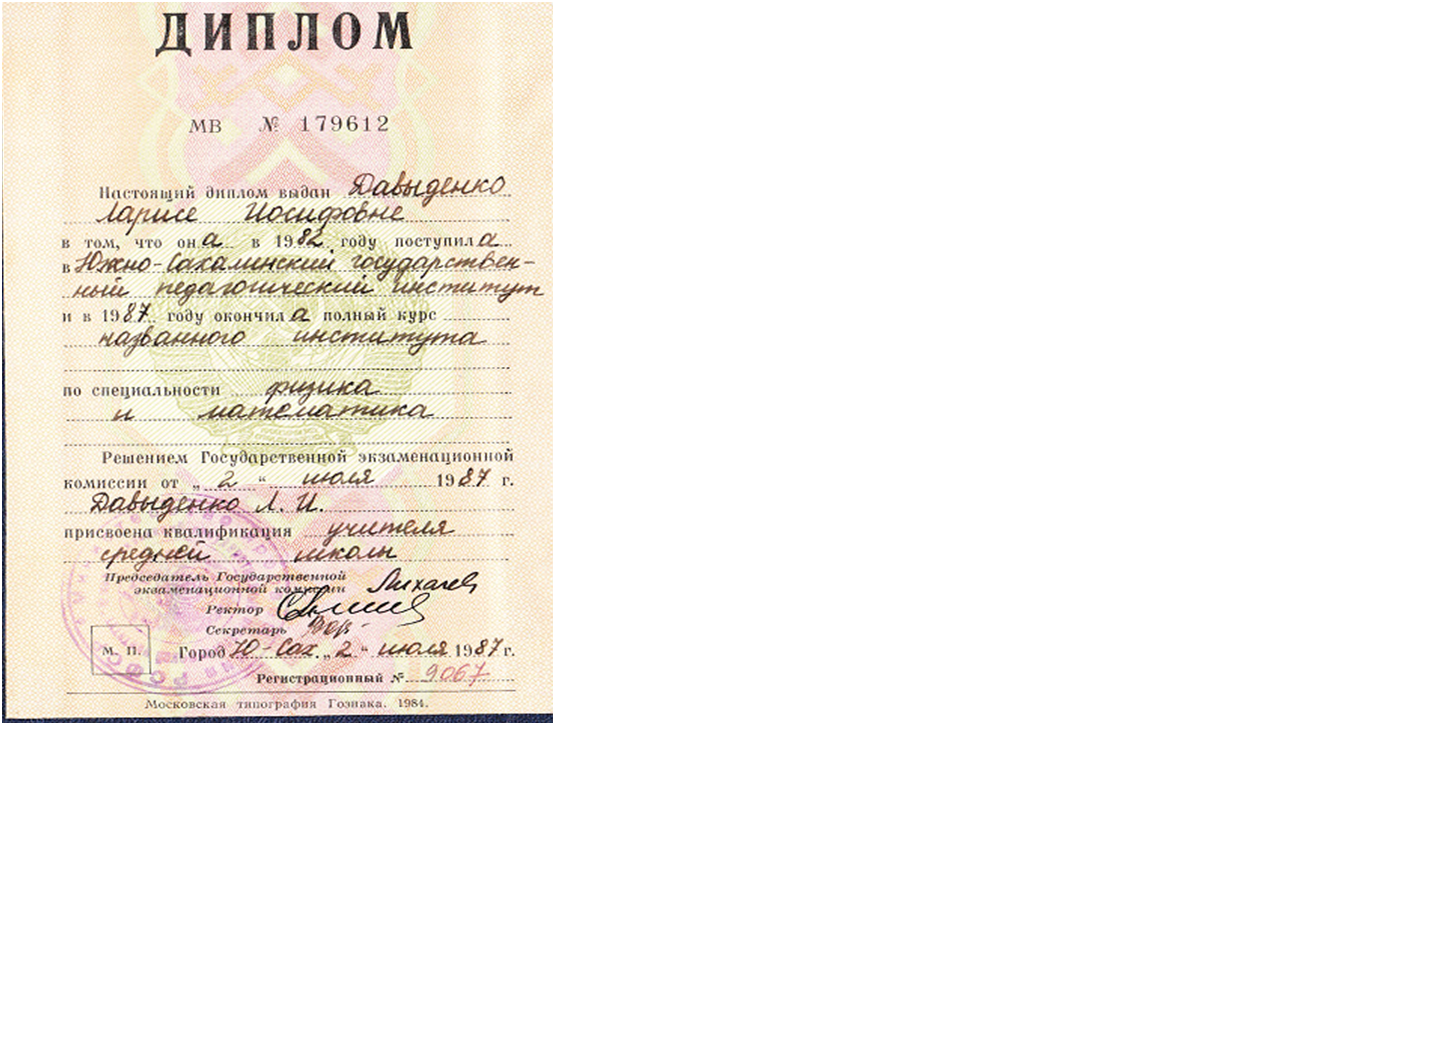 ДИПЛОМ
МВ № 179612
Настоящий диплом выдан Давыденко
Ларисе Иосифовне
в том, что она в 1982 году поступила
в Южно-Сахалинский государствен-
ный педагогический институт
и в 1987 году окончила полный курс
названного института
по специальности физика
и математика
Решением Государственной экзаменационной
комиссии от „2“ июля 1987 г.
Давыденко Л. И.
присвоена квалификация учителя
средней школы
Председатель Государственной
экзаменационной комиссии Лихачев
Ректор
Секретарь
М. П.
Город Ю-Сах. „2“ июля 1987 г.
Регистрационный № 9067
Московская типография Гознака. 1984.